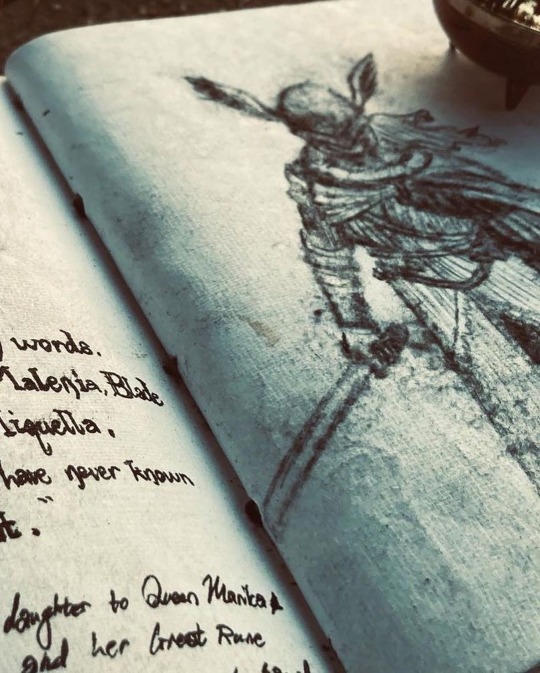 words.
Malenia, Blade
Miquella.
have never known
."
daughter to Queen Marika
and her Great Rune